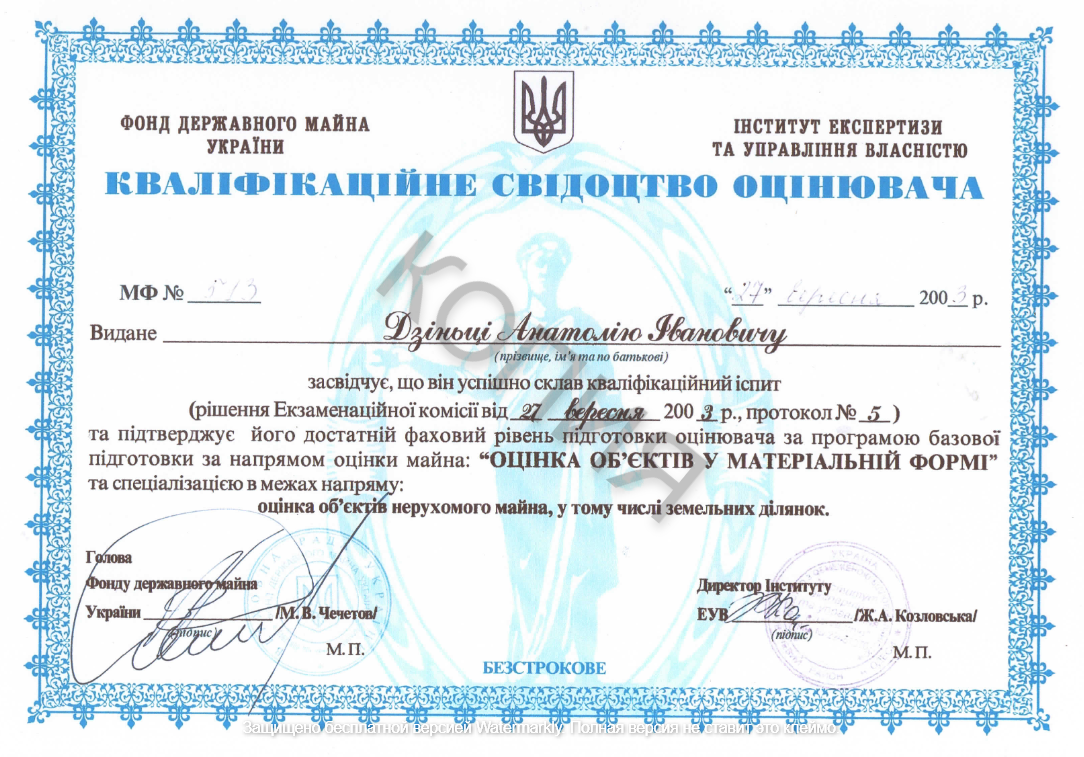 ФОНД ДЕРЖАВНОГО МАЙНА
УКРАЇНИ
ІНСТИТУТ ЕКСПЕРТИЗИ
ТА УПРАВЛІННЯ ВЛАСНІСТЮ
КВАЛІФІКАЦІЙНЕ СВІДОЦТВО ОЦІНЮВАЧА
МФ № 513 “27” вересня 2003 р.
Видане Дзіньці Анатолію Івановичу
(прізвище, ім'я та по батькові)
засвідчує, що він успішно склав кваліфікаційний іспит
(рішення Екзаменаційної комісії від 27 вересня 2003 р., протокол № 5)
та підтверджує його достатній фаховий рівень підготовки оцінювача за програмою базової
підготовки за напрямом оцінки майна: “ОЦІНКА ОБ’ЄКТІВ У МАТЕРІАЛЬНІЙ ФОРМІ”
та спеціалізацією в межах напряму:
оцінка об’єктів нерухомого майна, у тому числі земельних ділянок.
КОПИЯ
Голова
Фонду державного майна
України /М. В. Чечетов/
(підпис)
М.П.
Директор Інституту
ЕУВ /Ж.А. Козловська/
(підпис)
М.П.
БЕЗСТРОКОВЕ
Защищено бесплатной версией Watermarkly. Полная версия не ставит это клеймо.